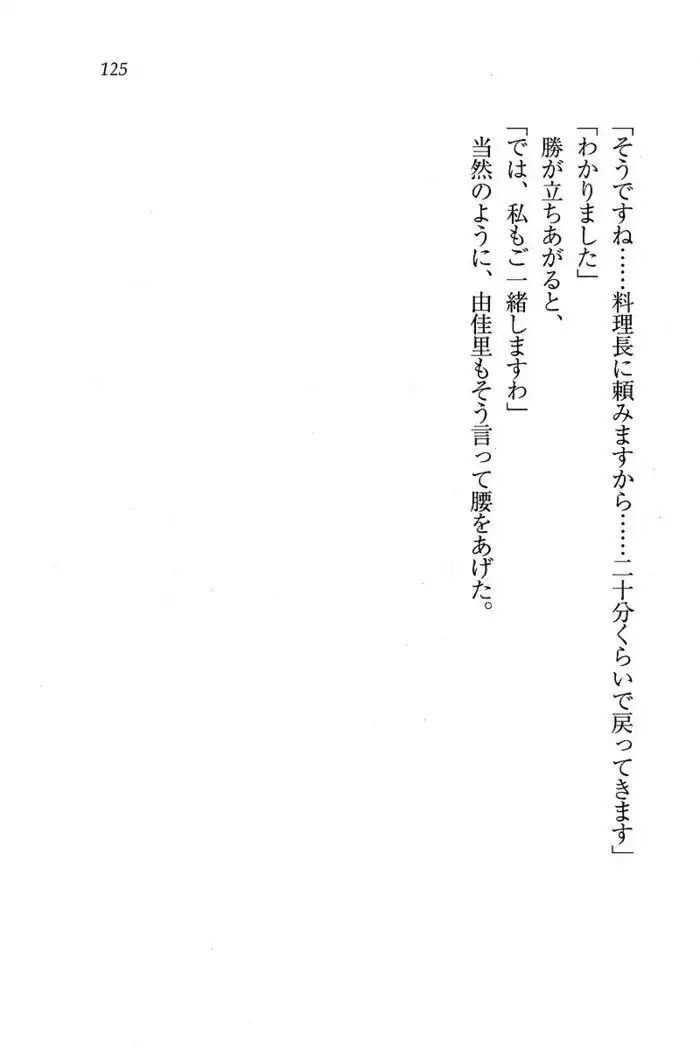 125
「そうですね……料理長に頼みますから……二十分くらいで戻ってきます」
「わかりました」
勝が立ちあがると、
「では、私もご一緒しますわ」
当然のように、由佳里もそう言って腰をあげた。